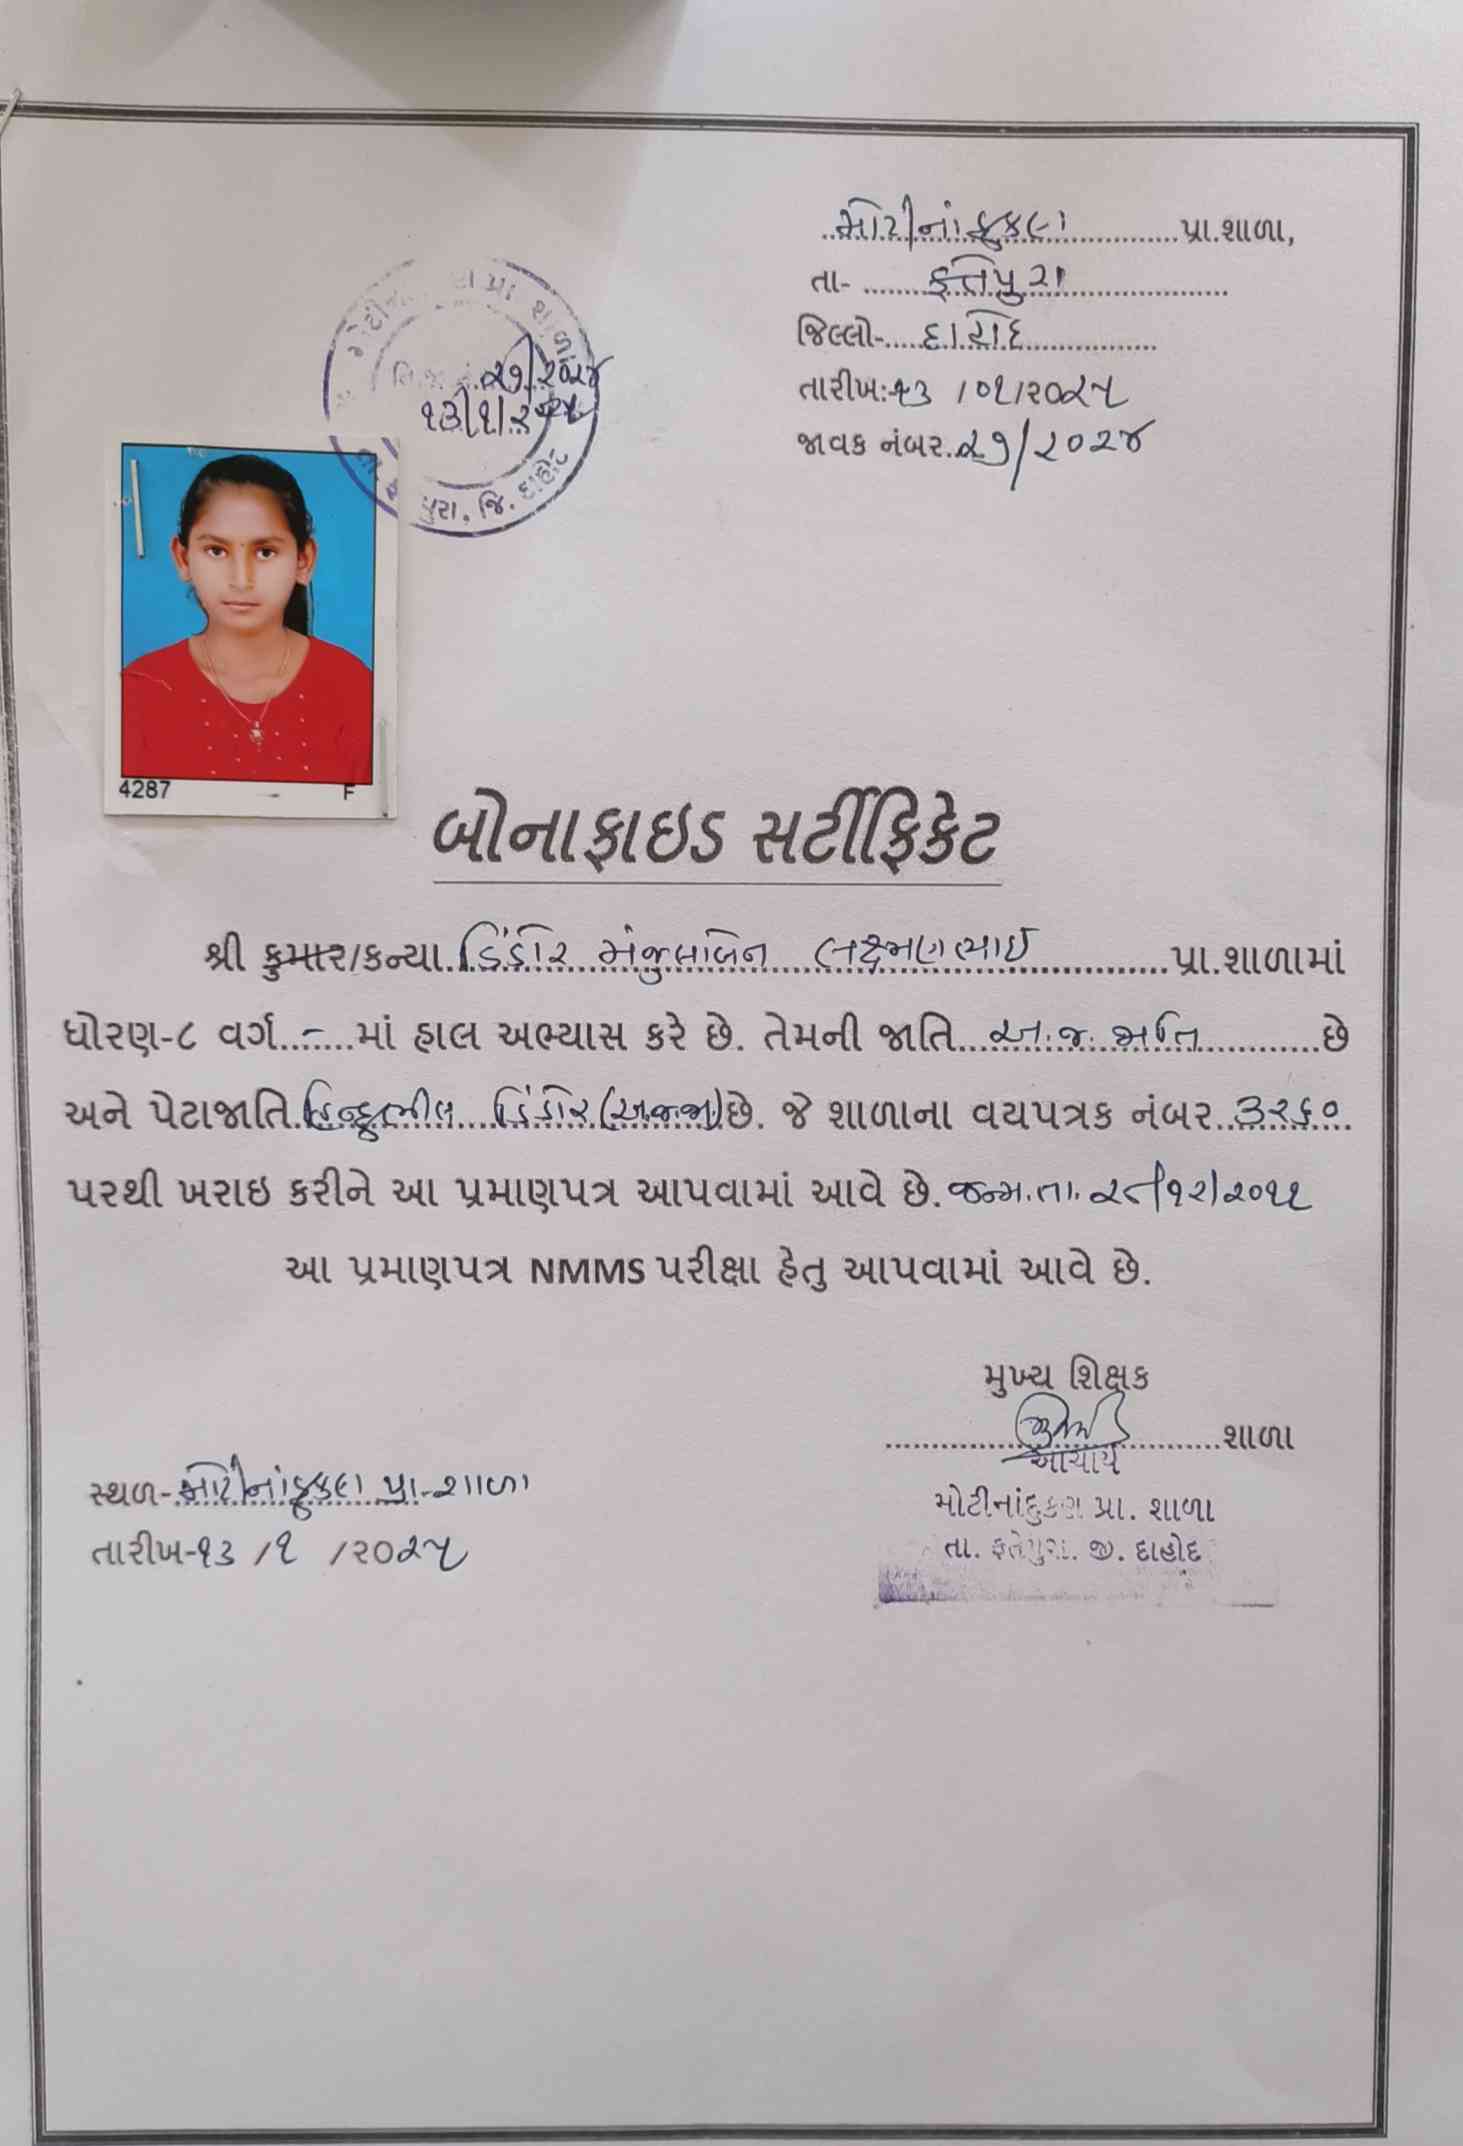 મોટીનાંદુકણ પ્રા.શાળા,
તા- ફતેપુરા
જિલ્લો- દાહોદ
તારીખ:- ૧૩ /૦૧/૨૦૨૫
જાવક નંબર. ૨૭/૨૦૨૪
પ્રા શાળા
૨૭/૨૦૨૪
૧૩/૧/૨૦૨૫
પુરા, જિ. દાહોદ
4287 F
બોનાફાઇડ સર્ટીફિકેટ
શ્રી કુમાર/કન્યા ડિંડોર મંજુલાબેન લક્ષ્મણભાઈ પ્રા.શાળામાં
ધોરણ-૮ વર્ગ..-..માં હાલ અભ્યાસ કરે છે. તેમની જાતિ અ.જ.જાતિ છે
અને પેટાજાતિ હિન્દુભીલ ડિંડોર (અ.જ.જા) છે. જે શાળાના વયપત્રક નંબર ૩૨૬૦
પરથી ખરાઇ કરીને આ પ્રમાણપત્ર આપવામાં આવે છે. જન્મ.તા. ૨૮/૧૨/૨૦૧૧
આ પ્રમાણપત્ર NMMS પરીક્ષા હેતુ આપવામાં આવે છે.
મુખ્ય શિક્ષક
શાળા
આચાર્ય
મોટીનાંદુકણ પ્રા. શાળા
તા. ફતેપુરા. જી. દાહોદ
સ્થળ- મોટીનાંદુકણ પ્રા-શાળા
તારીખ-૧૩ /૧ /૨૦૨૫